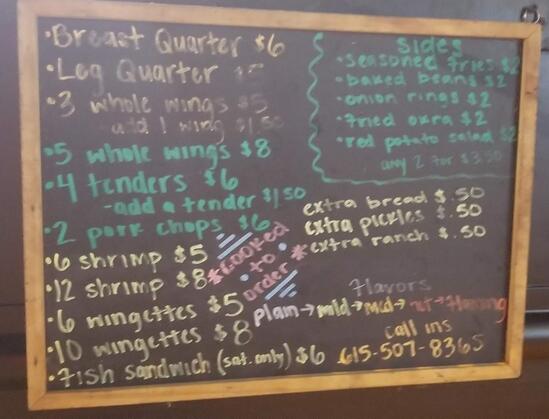 •Breast Quarter $6
•Leg Quarter $5
•3 whole wings $5
-add 1 wing $1.50
•5 whole wings $8
•4 tenders $6
-add a tender $1.50
•2 pork chops $6
•6 shrimp $5
•12 shrimp $8
•6 wingettes $5
•10 wingettes $8
•Fish sandwich (sat. only) $6
*cooked
•to•
order*
Sides
•seasoned fries $2
•baked beans $2
•onion rings $2
•fried okra $2
•red potato salad $2
any 2 for $3.50
extra bread $.50
extra pickles $.50
extra ranch $.50
Flavors
plain→mild→med→hot→flaming
call ins
615-507-8365